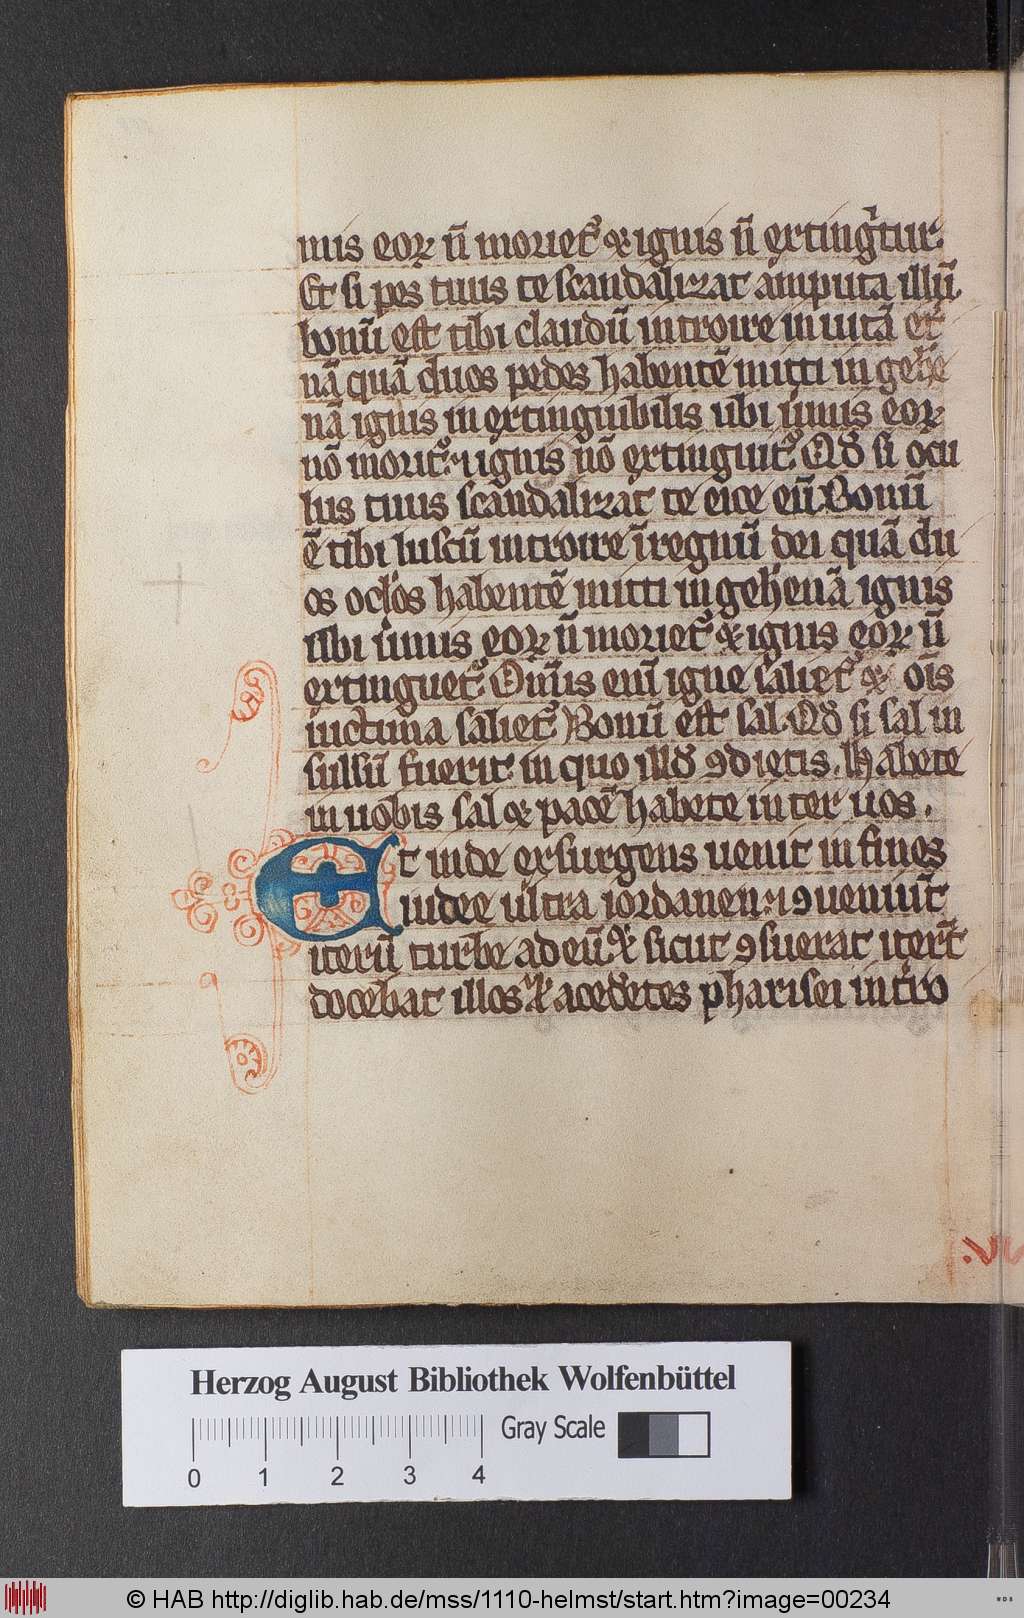 mis eoꝝ ñ moriet᷑ ⁊ ignis ñ extinguit᷑.
Et si pes tuus te scandalizat amputa illū.
bonū est tibi claudū introire in uitā et᷑
nā quā duos pedes habentē mitti in gehē
nā ignis in extinguibilis ubi ūmis eoꝝ
nō morit᷑. ⁊ ignis nō extinguit᷑. Qđ si ocu
lus tuus scandalizat te eice eū. Bonū
ē tibi luscū introire ī regnū dei quā du
os oclōs habentē mitti in gehenā ignis
Ubi ūmis eoꝝ ñ moriet᷑ ⁊ ignis eoꝝ ñ
extinguet᷑. Om̄is enī igne saliet᷑ ⁊ oīs
uictima saliet᷑. Bonū est sal. Qđ si sal in
sulsū fuerit. in quo illđ ꝯdietis. Habete
in uobis sal ⁊ pacē habete inter uos.
Et inde exsurgens uenit in fines
iudee ultra iordanen. ⁊ ꝯueniūt
iterū turbe ad eū. ⁊ sicut ꝯsuerat iter̄
docebat illos. ⁊ acedētes pharisei intro
Herzog August Bibliothek Wolfenbüttel
Gray Scale
0 1 2 3 4
© HAB http://diglib.hab.de/mss/1110-helmst/start.htm?image=00234